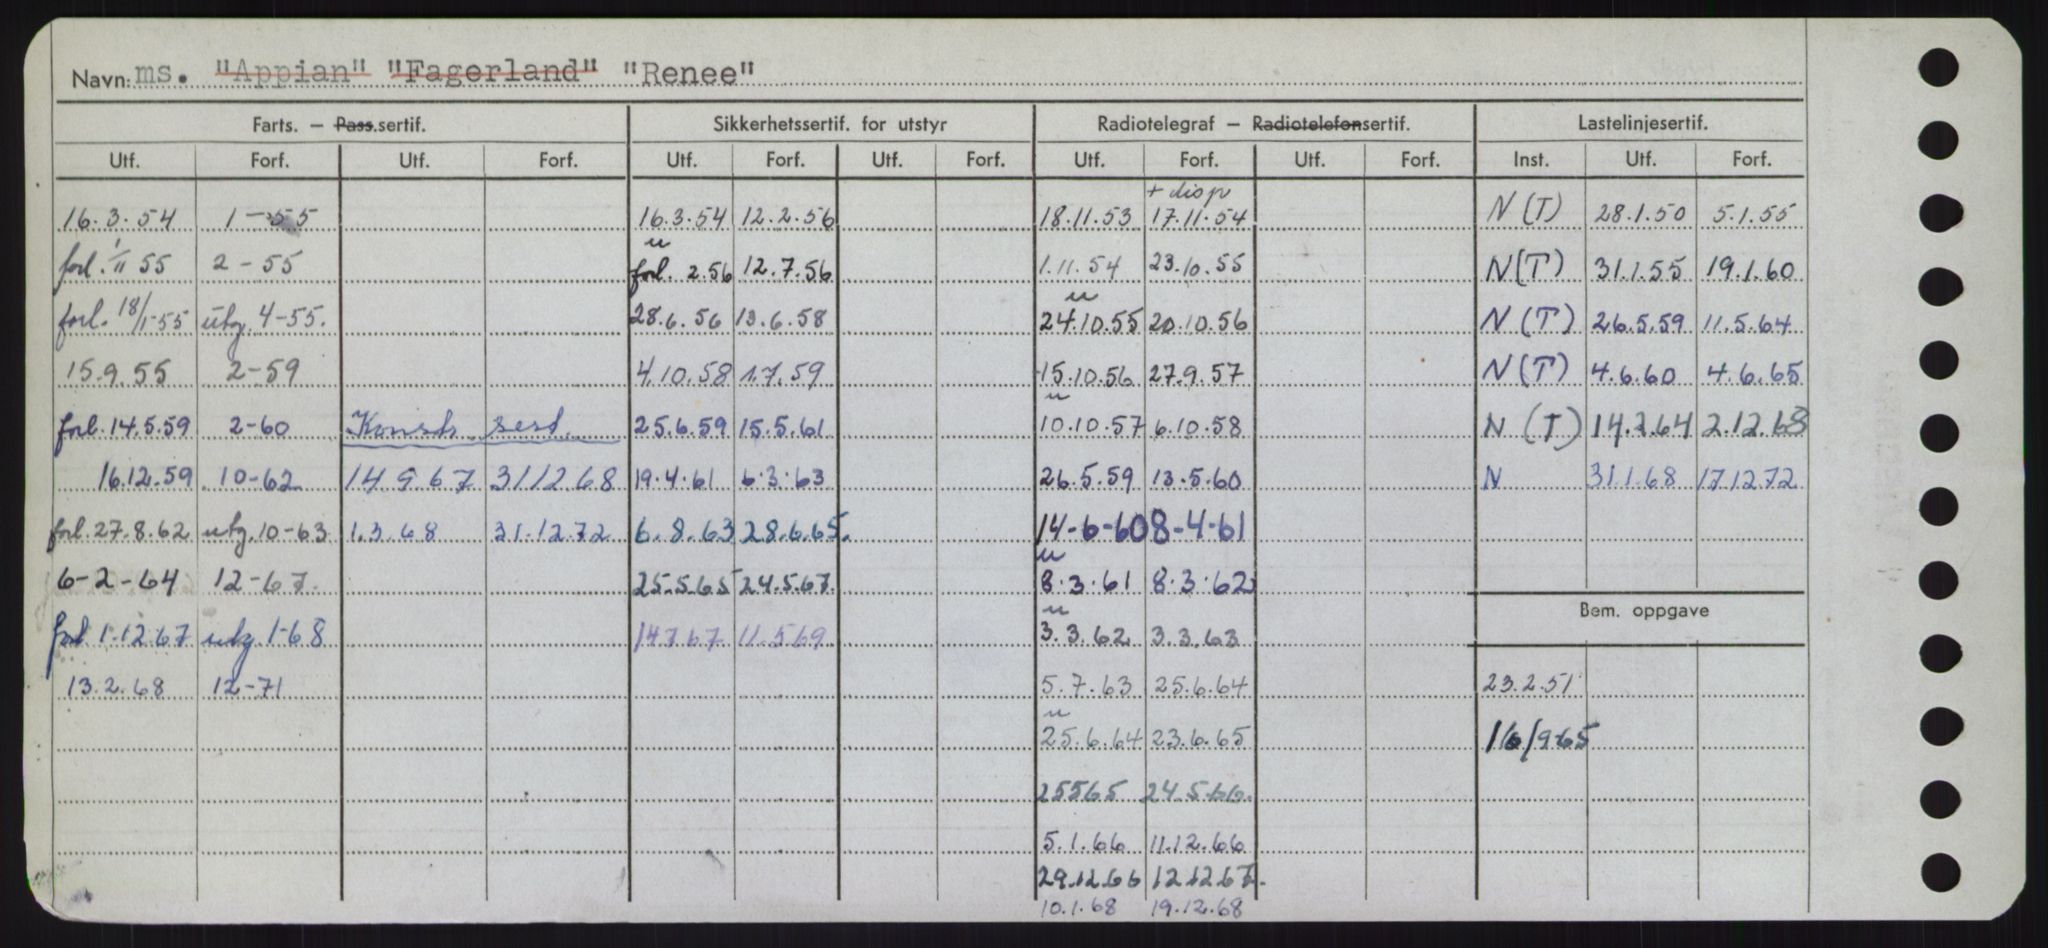 Navn: ms. "Appian" "Fagerland" "Renee"
Farts. — Pass.sertif. Sikkerhetssertif. for utstyr Radiotelegraf — Radiotelefonsertif. Lastelinjesertif.
Utf. Forf. Utf. Forf. Utf. Forf. Utf. Forf. Utf. Forf. Utf. Forf. Inst. Utf. Forf.
+ disp
16.3.54 1-55 16.3.54 12.2.56 18.11.53 17.11.54 N(T) 28.1.50 5.1.55
u
forl. 1/11 55 2-55 forl. 2.56 12.7.56 1.11.54 23.10.55 N(T) 31.1.55 19.1.60
u
forl. 18/1-55 utg. 4-55. 28.6.56 13.6.58 24.10.55 20.10.56 N(T) 26.5.59 11.5.64
15.9.55 2-59 4.10.58 1.7.59 15.10.56 27.9.57 N(T) 4.6.60 4.6.65
u
forl. 14.5.59 2-60 Konstr. sert. 25.6.59 15.5.61 10.10.57 6.10.58 N (T) 14.2.64 2.12.68
16.12.59 10-62 14 9 67 31 12 68 19.4.61 6.3.63 26.5.59 13.5.60 N 31.1.68 17 12 72
forl. 27.8.62 utg. 10-63 1.3.68 31.12.72 6.8.63 28.6.65. 14-6-60 8-4-61
u
6-2-64 12-67. 25.5.65 24.5.67. 8.3.61 8.3.62
Bem. oppgave
u
forl. 1.12.67 utg. 1-68 14.7.67 11.5.69 3.3.62 3.3.63
13.2.68 12-71 5.7.63 25.6.64 23.2.51
u
25.6.64 23.6.65 16/9-65
25565 24.5.66.
5.1.66 11.12.66
29.12.66 12.12.67.
10.1.68 19.12.68